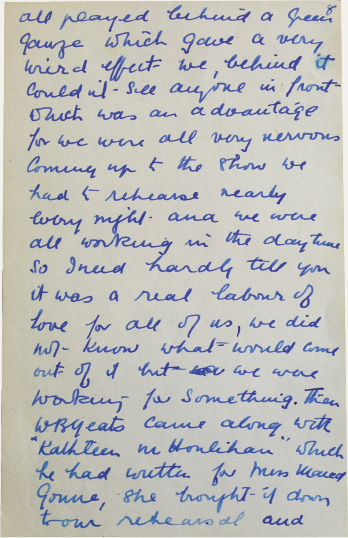 8
all played behind a green
gauze which gave a very
wierd effect we, behind it
couldn't see anyone in front
which was an advantage
for we were all very nervous
coming up to the show we
had to rehearse nearly
every night and we were
all working in the daytime
so I need hardly tell you
it was a real labour of
love for all of us, we did
not know what would come
out of it but we were
working for something. Then
WBYeats came along with
"Kathleen ni Houlihan" which
he had written for Miss Maud
Gonne, she brought it down
to our rehearsal and